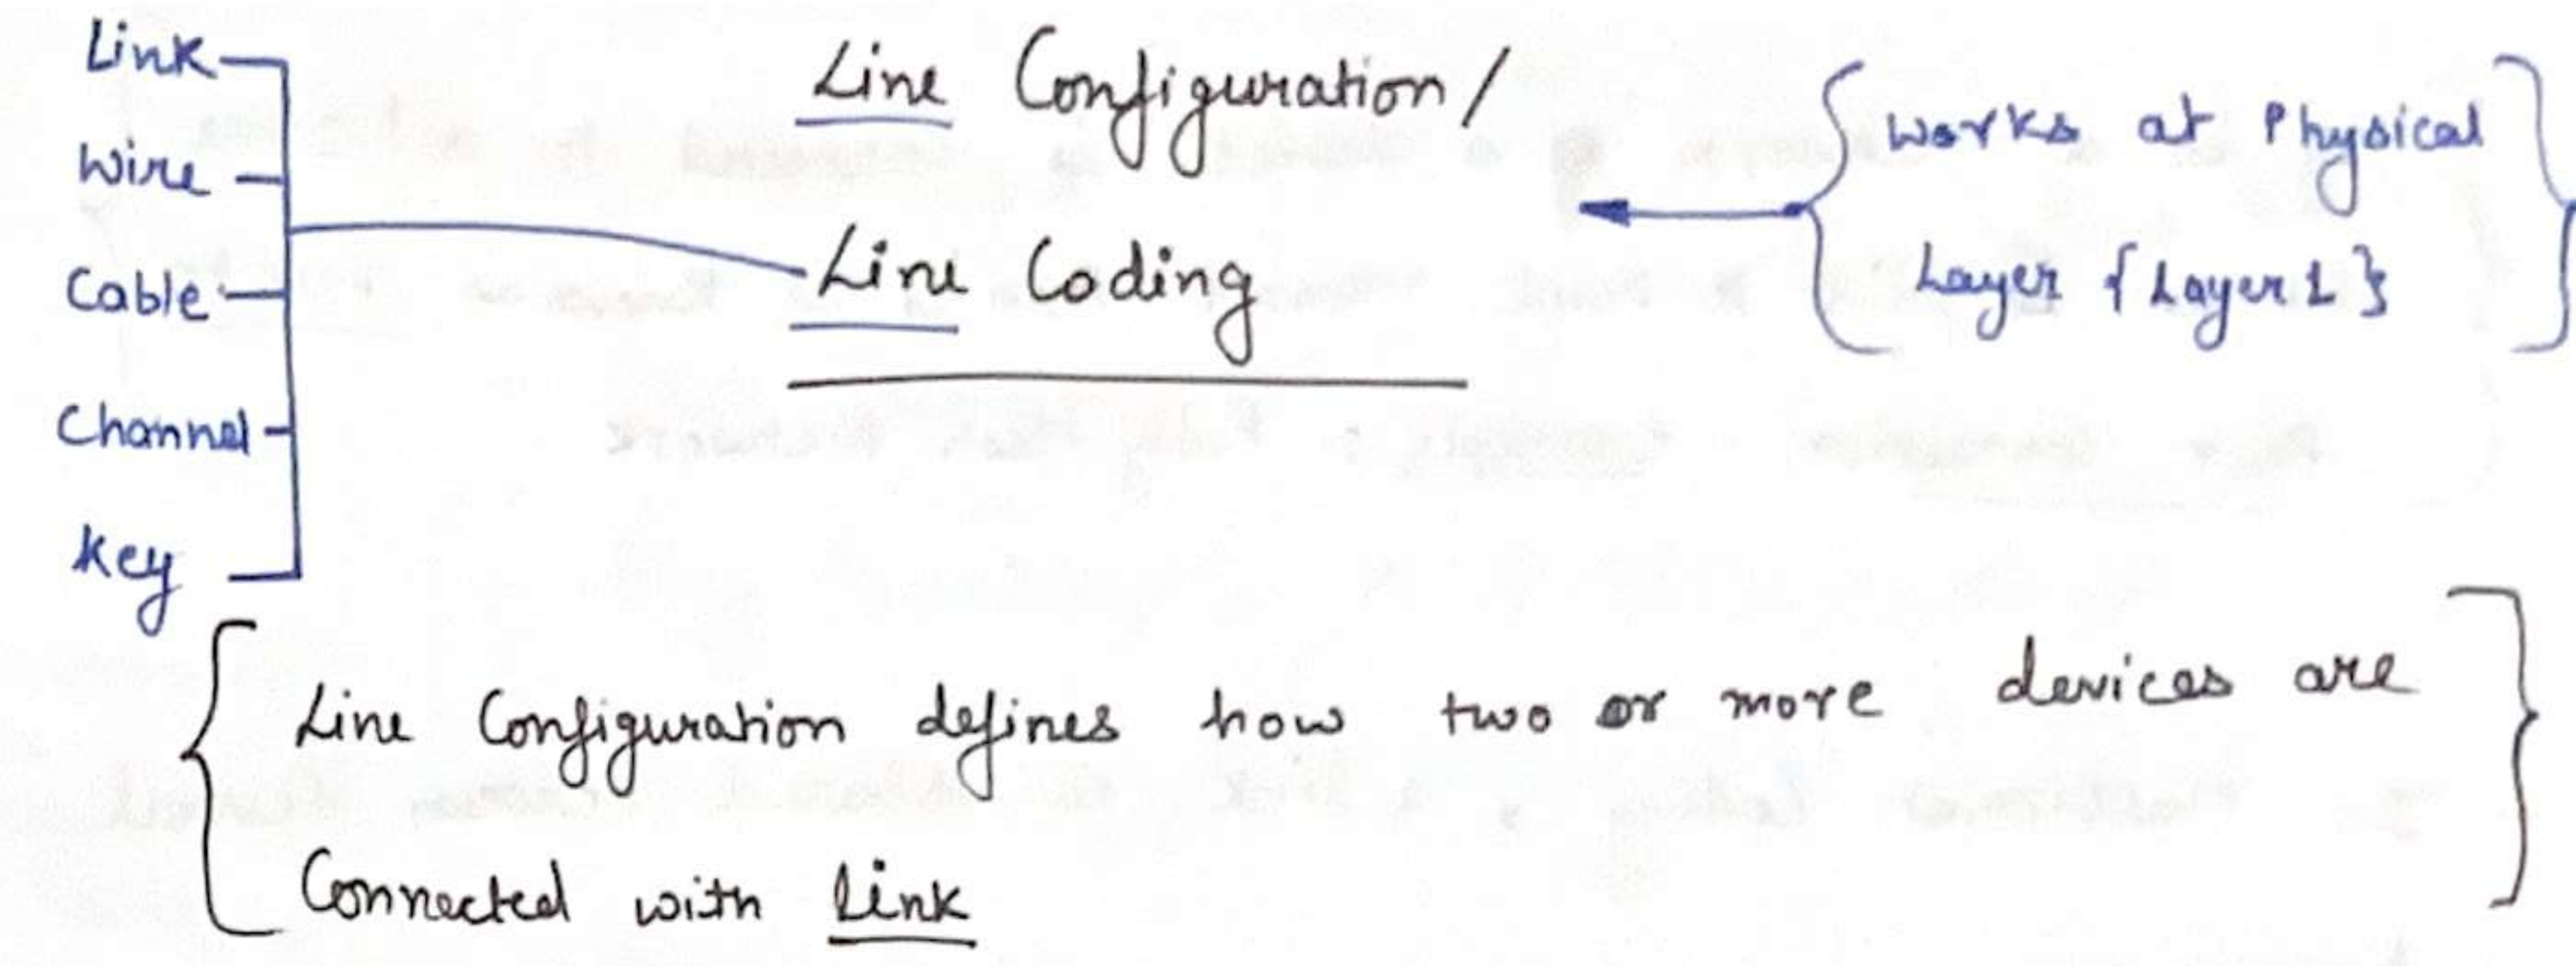 Link
Wire
Cable
Channel
Key
Line Configuration/
Line Coding
Works at Physical
Layer {Layer 1}
Line Configuration defines how two or more devices are
Connected with Link